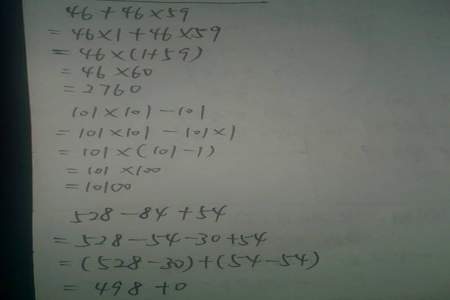 46+46×59
=46×1+46×59
=46×(1+59)
=46×60
=2760
101×101-101
=101×101-101×1
=101×(101-1)
=101×100
=10100
528-84+54
=528-54-30+54
=(528-30)+(54-54)
=498+0